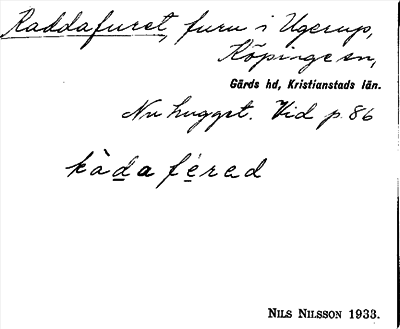 Kaddafuret, furu i Ugerup,
Köpinge sn,
Gärds hd, Kristianstads län.
Nu hugget. Vid p. 86
kàda féred
NILS NILSSON 1933.